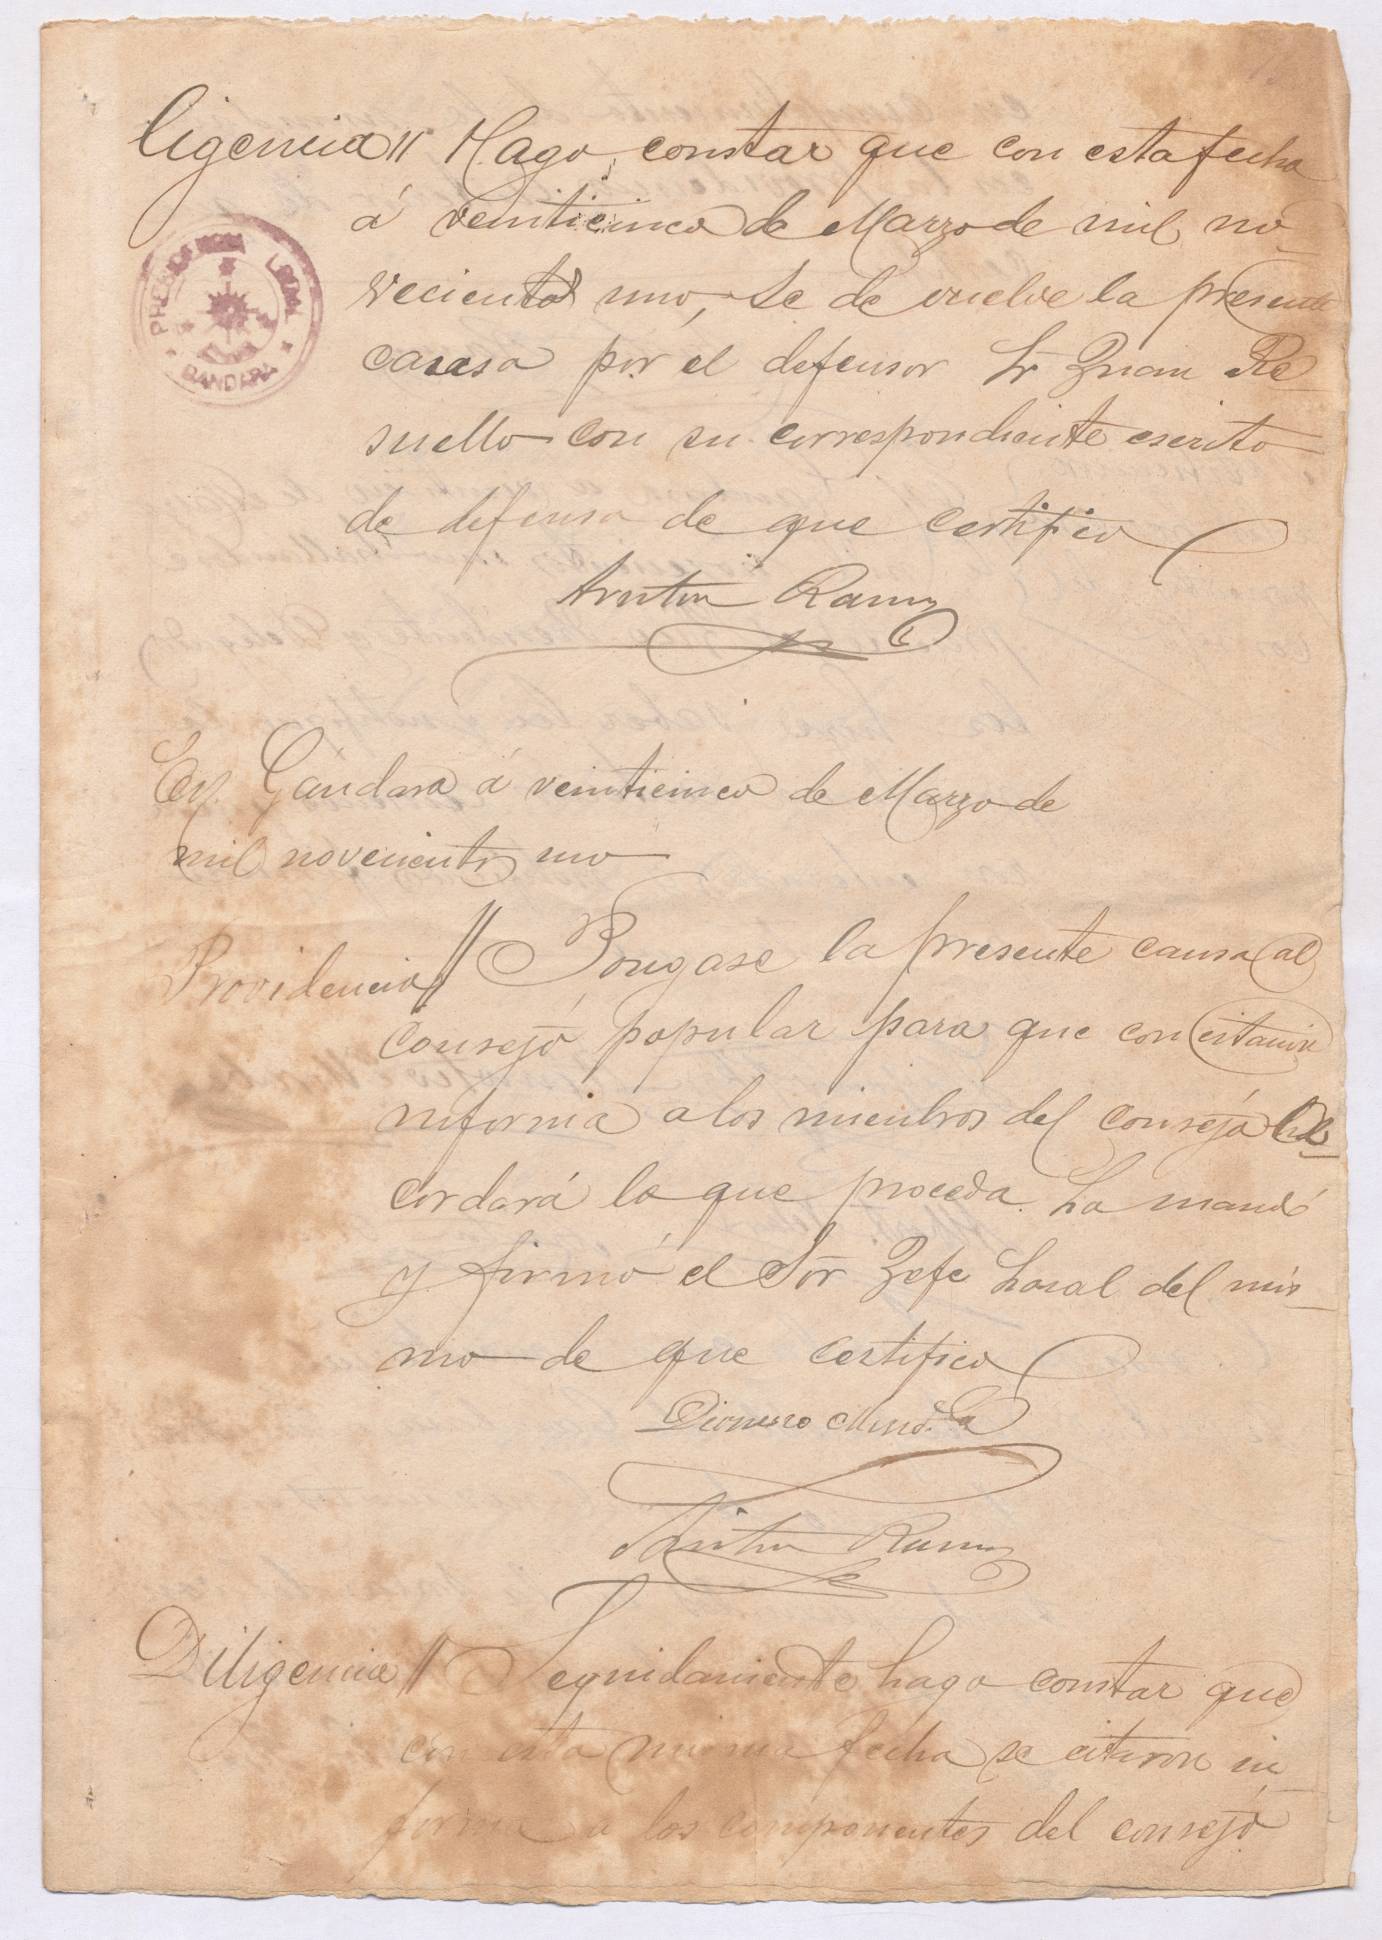 ligencia // Hago constar que con esta fecha
á veinticinco de Marzo de mil no
vecientos uno, se de vuelve la presente
causa por el defensor Sr Juan Re
suello con su correspondiente escrito
de defensa de que certifico
PRESIDENCIA LOCAL
GANDARA
Ramz
En Gándara á veinticinco de Marzo de
mil novecientos uno
Providencia // Pongase la presente causa al
consejo popular para que con citacion
informa a los miembros del consejo a
cordará lo que proceda. Lo mandó
y firmó el Sõr Jefe Local del mis
mo de que certifico
Dionisio Mendoza
Ramz
Diligencia // Seguidamente hago constar que
con esta misma fecha se citaron in
forma a los componentes del consejo